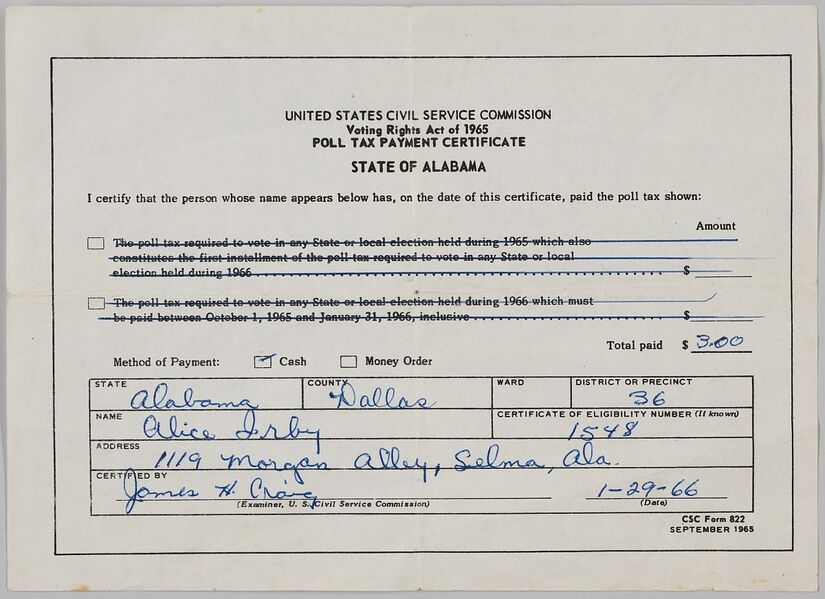 UNITED STATES CIVIL SERVICE COMMISSION
Voting Rights Act of 1965
POLL TAX PAYMENT CERTIFICATE
STATE OF ALABAMA
I certify that the person whose name appears below has, on the date of this certificate, paid the poll tax shown:
Amount
The poll tax required to vote in any State or local election held during 1965 which also
constitutes the first installment of the poll tax required to vote in any State or local
election held during 1966 . . . . . . . . . . . . . . . . . . . . . . . . . . . . . . . . . . . . . . . . . . . . . . $
The poll tax required to vote in any State or local election held during 1966 which must
be paid between October 1, 1965 and January 31, 1966, inclusive . . . . . . . . . . . . . . . . . . . . . . $
Total paid $ 3.00
Method of Payment: Cash Money Order
STATE COUNTY WARD DISTRICT OR PRECINCT
Alabama Dallas 36
NAME CERTIFICATE OF ELIGIBILITY NUMBER (If known)
Alice Irby 1548
ADDRESS
1119 Morgan Alley, Selma, Ala.
CERTIFIED BY
James H. Craig 1-29-66
(Examiner, U. S. Civil Service Commission) (Date)
CSC Form 822
SEPTEMBER 1965